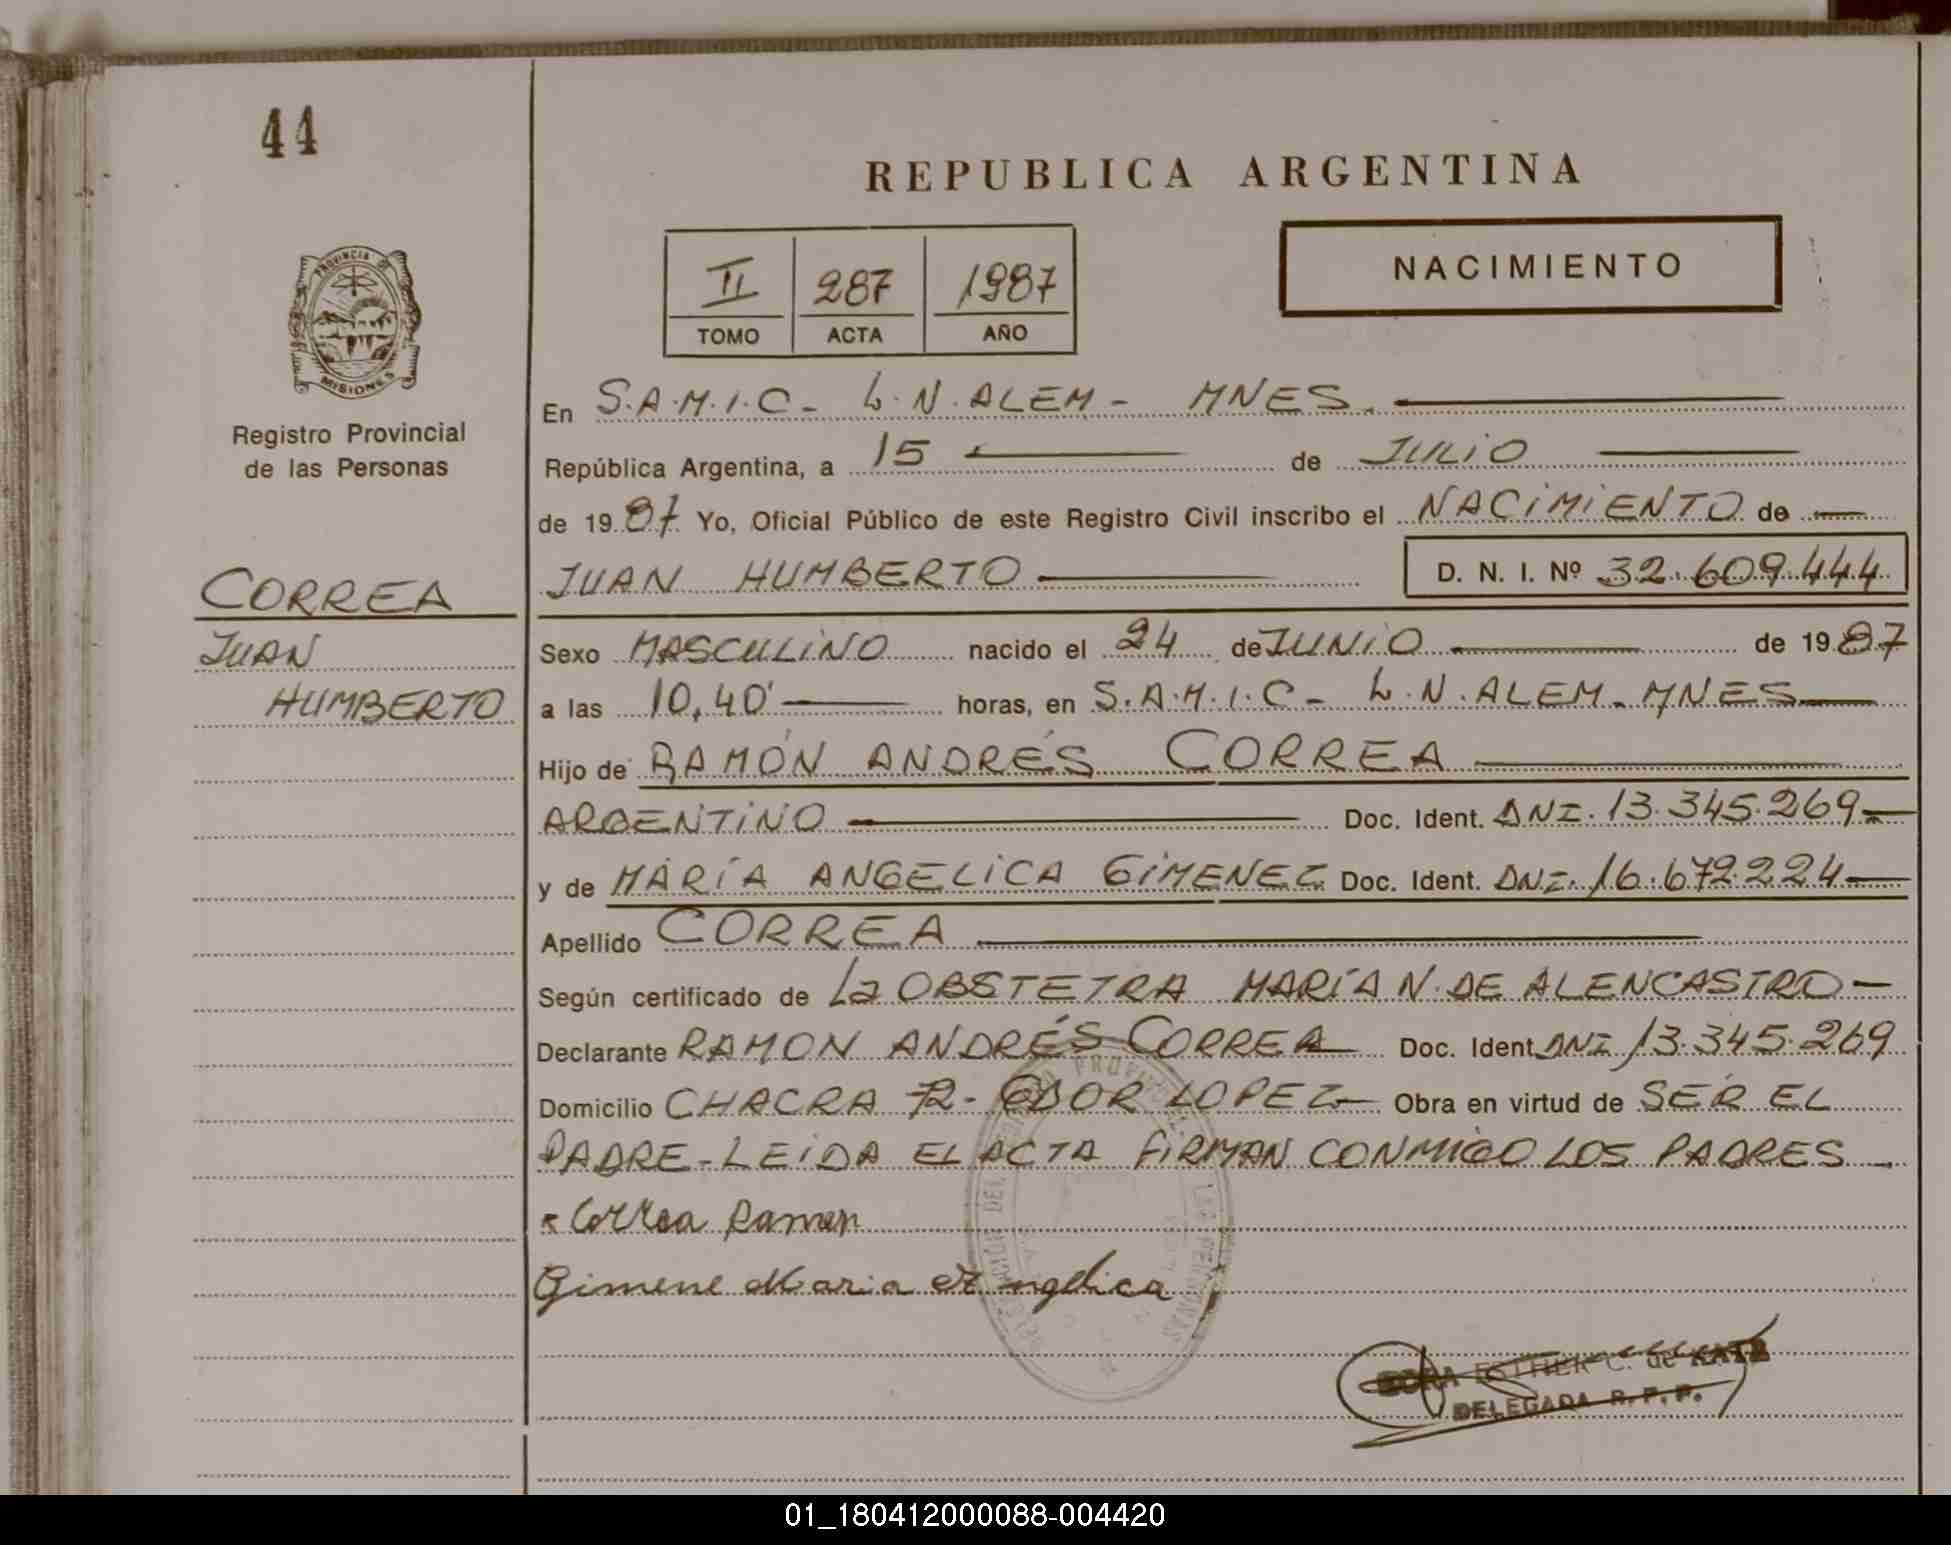 44
REPUBLICA ARGENTINA
II 287 1987
TOMO ACTA AÑO
NACIMIENTO
PROVINCIA DE
MISIONES
Registro Provincial
de las Personas
En S.A.M.I.C - L.N. ALEM - MNES.
República Argentina, a 15 de JULIO
de 1987 Yo, Oficial Público de este Registro Civil inscribo el NACIMIENTO de
JUAN HUMBERTO D. N. I. Nº 32.609.444
CORREA
JUAN
HUMBERTO
Sexo MASCULINO nacido el 24 de JUNIO de 1987
a las 10,40' horas, en S.A.M.I.C - L.N. ALEM - MNES
Hijo de RAMÓN ANDRÉS CORREA
ARGENTINO Doc. Ident. DNI. 13.345.269
y de MARÍA ANGELICA GIMENEZ Doc. Ident. DNI. 16.672.224
Apellido CORREA
Según certificado de La OBSTETRA MARÍA N. DE ALENCASTRO
Declarante RAMON ANDRÉS CORREA Doc. Ident DNI 13.345.269
Domicilio CHACRA 72 - CDOR LOPEZ Obra en virtud de SER EL
PADRE - LEIDA EL ACTA FIRMAN CONMIGO LOS PADRES
Correa Ramon
Gimene Maria Angelica
ESTHER C. de KATZ
DELEGADA R. P. P.
01_180412000088-004420